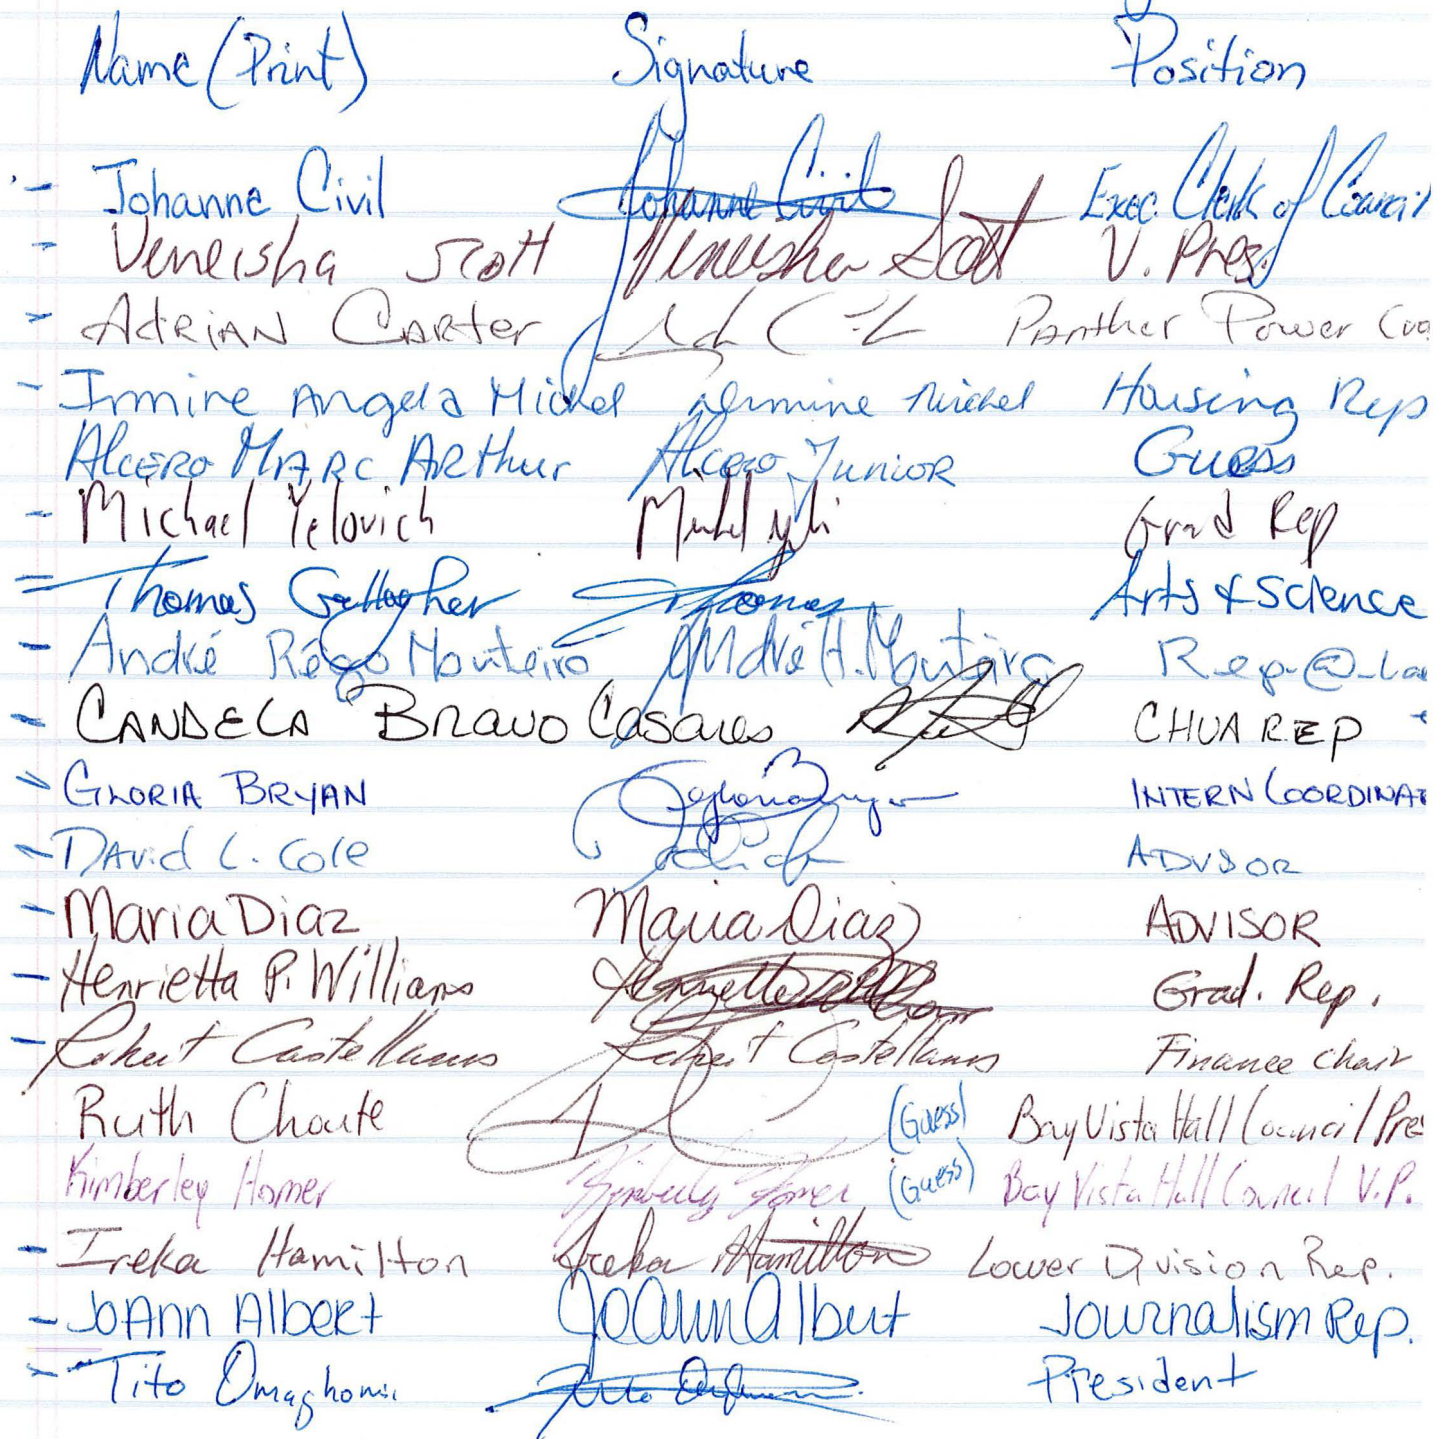 Name (Print) Signature Position
- Johanne Civil Johanne Civil Exec. Clerk of Council
- Veneisha Scott Veneisha Scott V. Pres.
- Adrian Carter Panther Power
- Irmine Angela Michel Irmine Michel Housing Rep
Alcero Marc Arthur Alcero Junior Guess
- Michael Yelovich Grad Rep
- Thomas Gallagher Thomas Arts & Science
- André Rêgo Monteiro André H. Monteiro Rep. @
- CANDELA Bravo Casares CHUA REP
- GLORIA BRYAN Gloria Bryan INTERN COORDINAT
- David L. Cole ADVISOR
- Maria Diaz Maria Diaz ADVISOR
- Henrietta P. Williams Grad. Rep.
- Robert Castellanos Robert Castellanos Finance Chair
Ruth Choute (Guess) Bay Vista Hall Council Pres
Kimberley Homer Kimberley Homer (Guess) Bay Vista Hall Council V.P.
- Ireka Hamilton Ireka Hamilton Lower Division Rep.
- JoAnn Albert JoAnn Albert Journalism Rep.
- Tito Omaghomi President